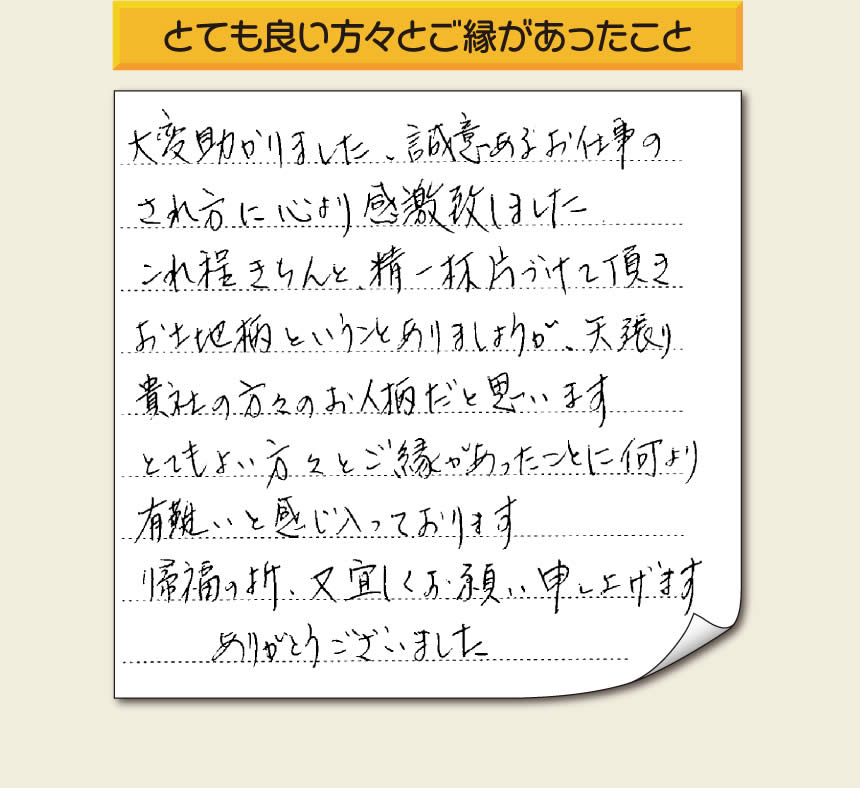 とても良い方々とご縁があったこと
大変助かりました、誠意あるお仕事の
され方に心より感激致しました
これ程きちんと、精一杯片づけて頂き
お土地柄ということありましょうが、天張り
貴社の方々のお人柄だと思います
とてもよい方々とご縁があったことに何より
有難いと感じ入っております
帰福の折、又宜しくお願い申し上げます
ありがとうございました